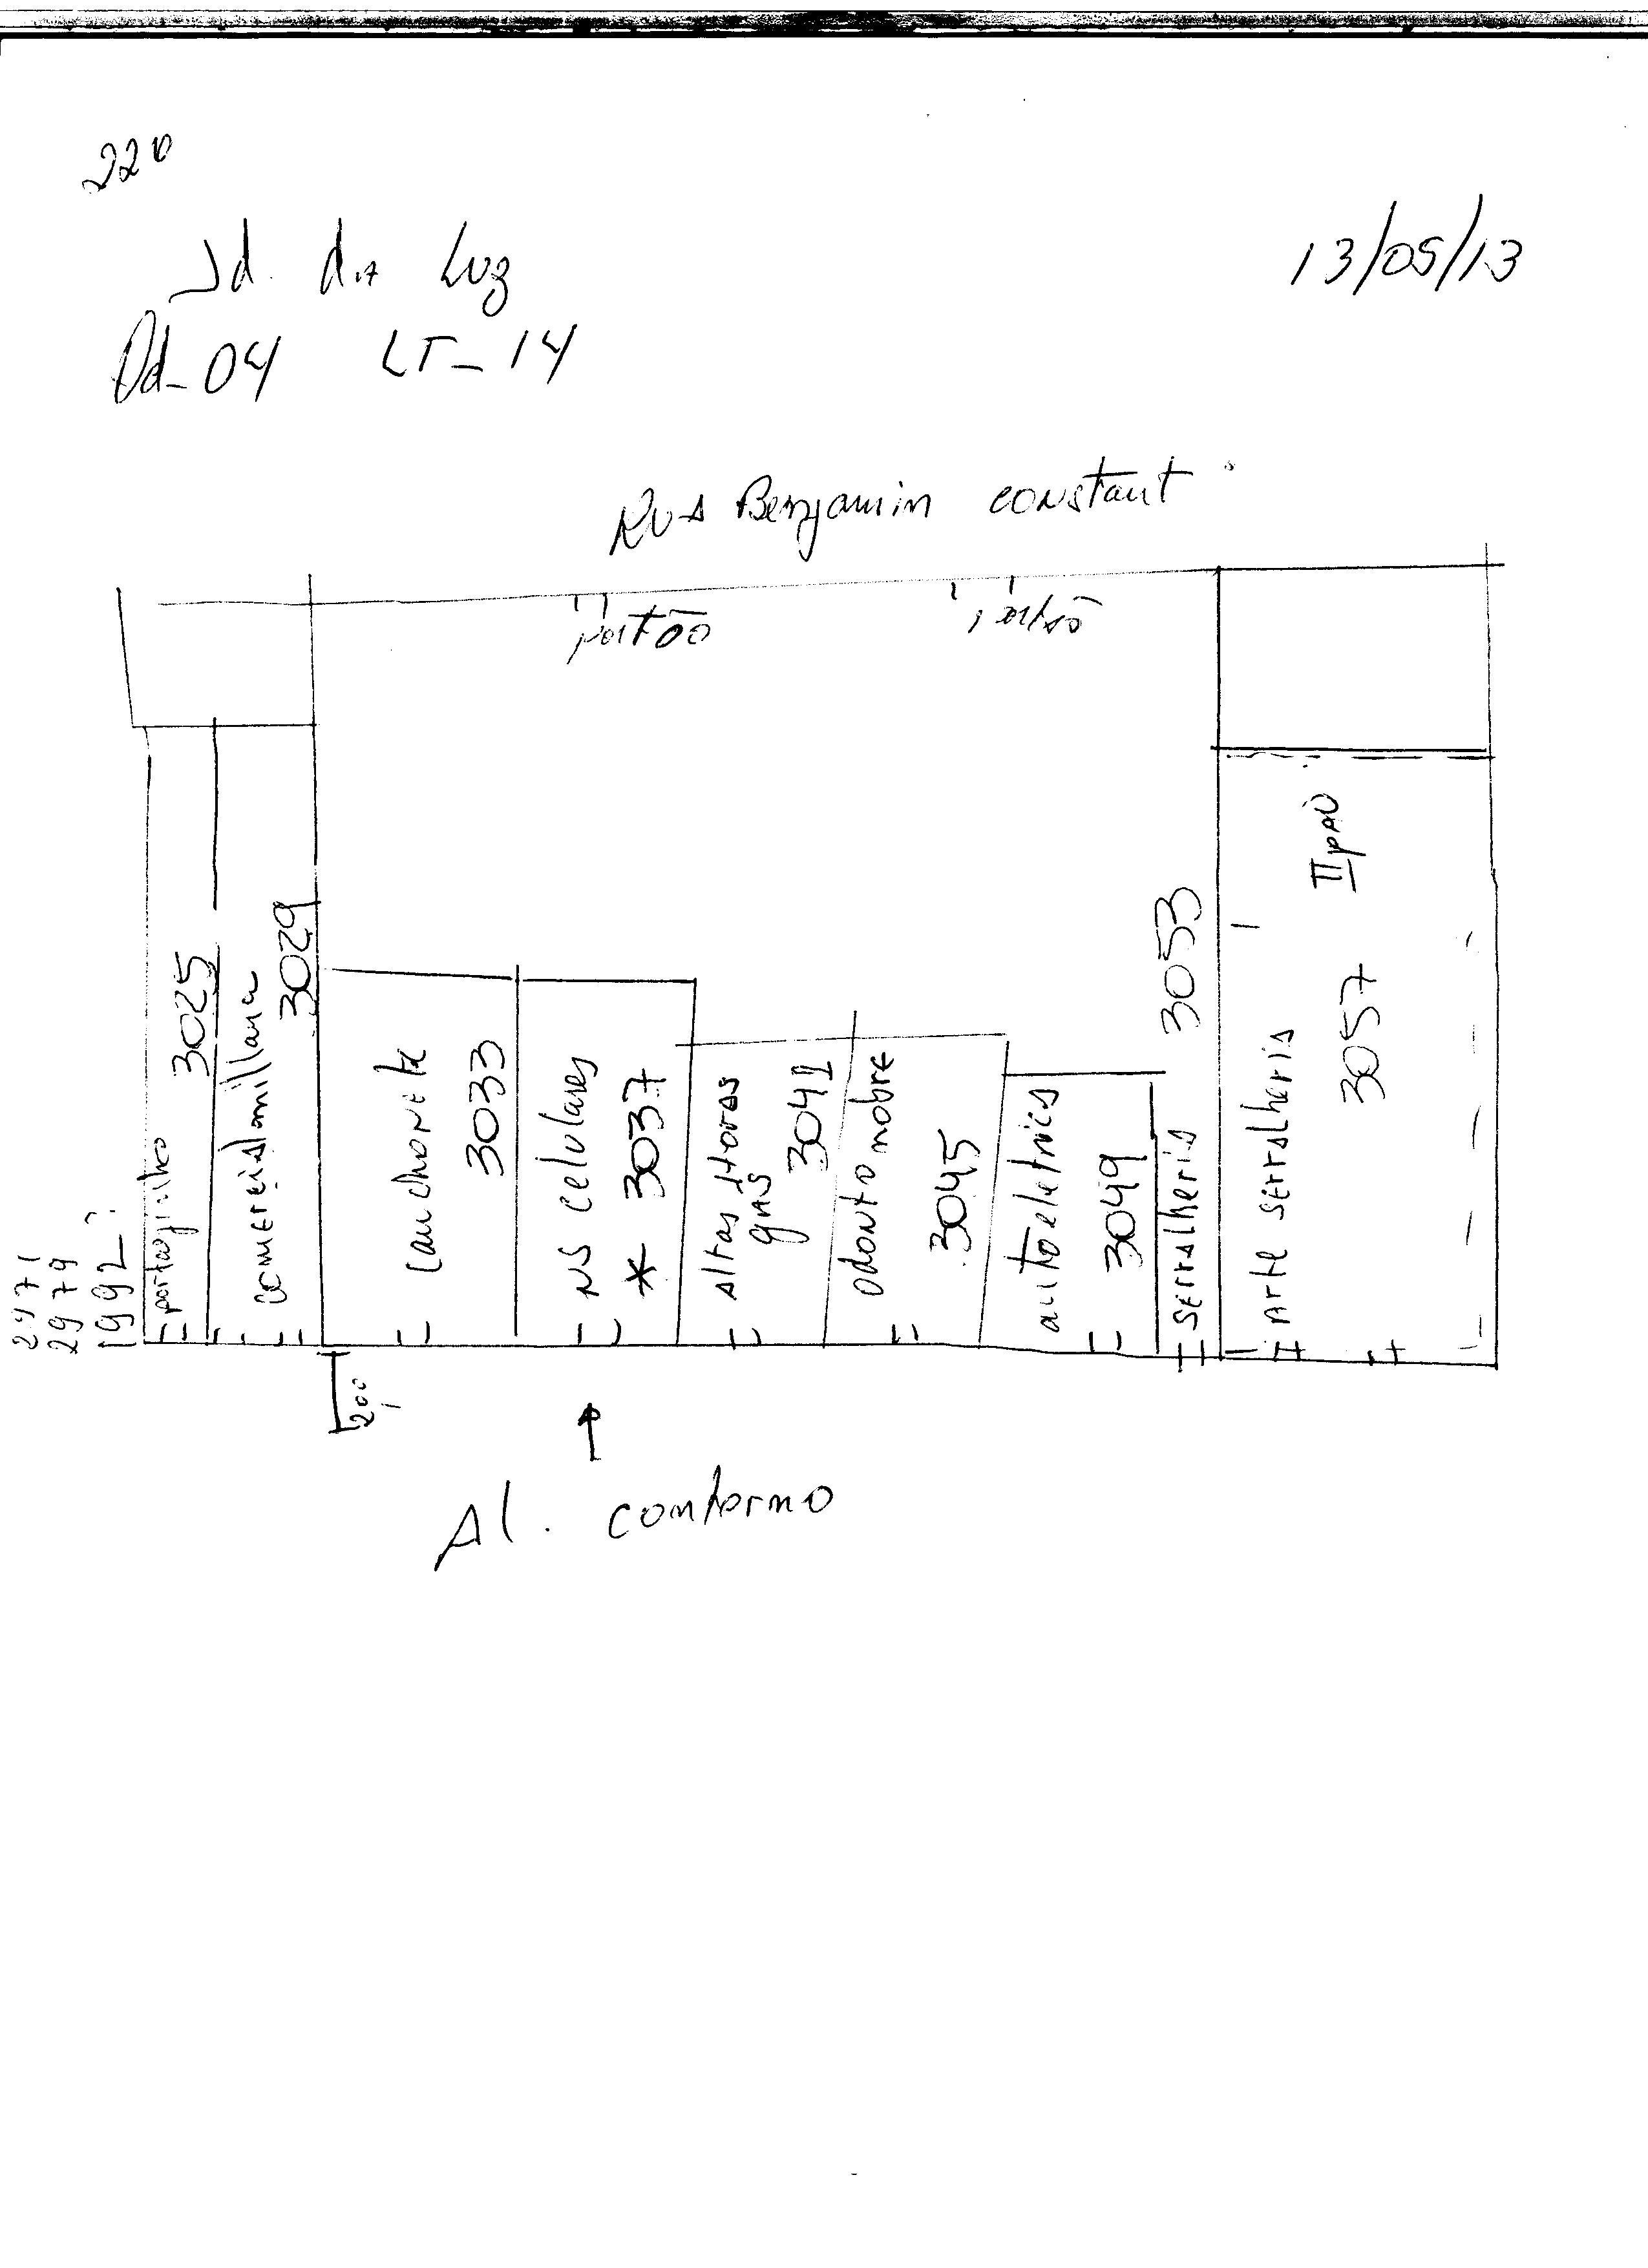 220
Jd. da Luz
13/05/13
Qd-04 LT-14
Rua Benjamin constant
portão
portão
2979
1992?
3025
comercial
3029
Lanchonete
3033
NS celulares
* 3037
altas Horas
gás
3041
odonto nobre
3045
autoeletrica
3049
serralheria
3053
parte serralheria
3057
II pav
200
Al. contorno